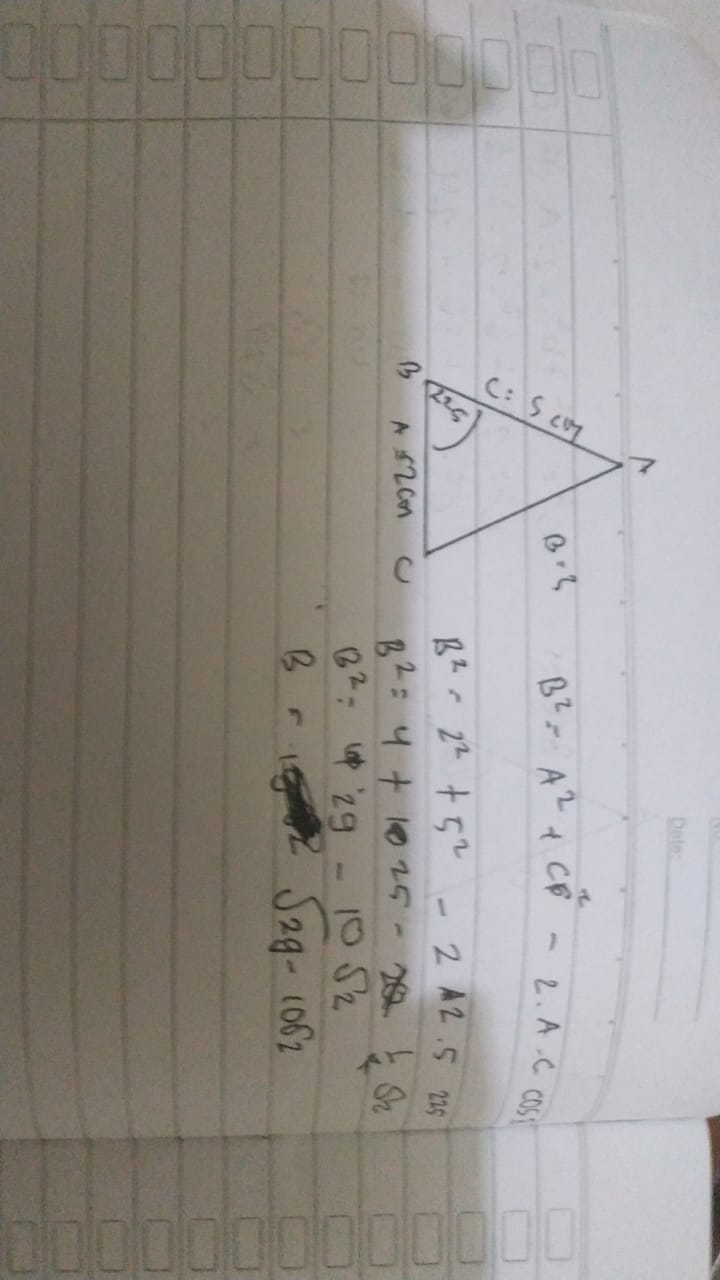 Date:
A
C: 5 cm
225
B A = 2 cm C
B = ?
B² = A² + C² - 2. A. C cos
B² = 2² + 5² - 2 2. 5 225
B² = 4 + 25 - ½ √2
B² = 29 - 10 √2
B = √29 - 10√2